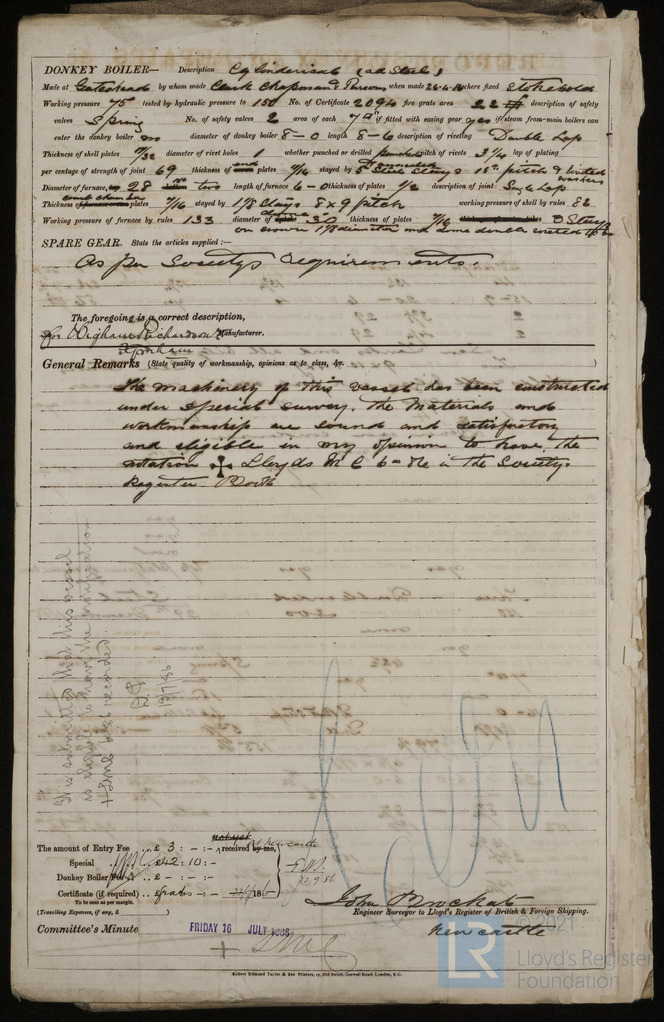 DONKEY BOILER— Description Cylinderical (all Steel)
Made at Gateshead by whom made Clark Chapman & Parsons when made 26.4.86 where fixed Stokehold
Working pressure 75 tested by hydraulic pressure to 150 No. of Certificate 2094 fire grate area 22 description of safety
valves Spring No. of safety valves 2 area of each 7 if fitted with easing gear yes if steam from main boilers can
enter the donkey boiler no diameter of donkey boiler 8-0 length 8-6 description of riveting Double Lap
Thickness of shell plates 17/32 diameter of rivet holes 1 whether punched or drilled punched pitch of rivets 3 1/4 lap of plating
per centage of strength of joint 69 thickness of end plates 9/16 stayed by 5 Steel Stays 15" pitch & riveted washers
Diameter of furnace, 28 two length of furnace 6-0 thickness of plates 1/2 description of joint Single Lap
Thickness of plates 7/16 stayed by 1 1/8 Stays 8 x 9 pitch working pressure of shell by rules 82
Working pressure of furnace by rules 133 diameter of 30 thickness of plates 7/16 3 Stays
on crown 1 7/8 diameter and dome double riveted
SPARE GEAR. State the articles supplied:—
As per Societys requirements.
The foregoing is a correct description,
for Wigham Richardson & Co Manufacturer.
General Remarks (State quality of workmanship, opinions as to class, &c. )
The machinery of this vessel has been constructed
under special survey. The materials and
workmanship are sound and satisfactory
and eligible in my opinion to have the
notation ✠ Lloyds M C 6-86 in the Societys
Register Book
It is submitted that this vessel
is eligible to have the notification
+ LMC 6.86 recorded
13/7/86
The amount of Entry Fee .. £ 3 : - : - received by me,
not yet at Newcastle
Special .. £42 : 10 : -
Donkey Boiler Fee .. £ - : - : -
22.9.86
Certificate (if required) .. £ gratis - : - 186
To be sent as per margin.
(Travelling Expenses, if any, £ )
John Brockat
Engineer Surveyor to Lloyd's Register of British & Foreign Shipping.
Newcastle
Committee's Minute FRIDAY 16 JULY 1886
+ LMC
Robert Edmund Taylor & Son Printers, 19, Old Street, Goswell Road, London, E.C.
LR
Lloyd's Register
Foundation